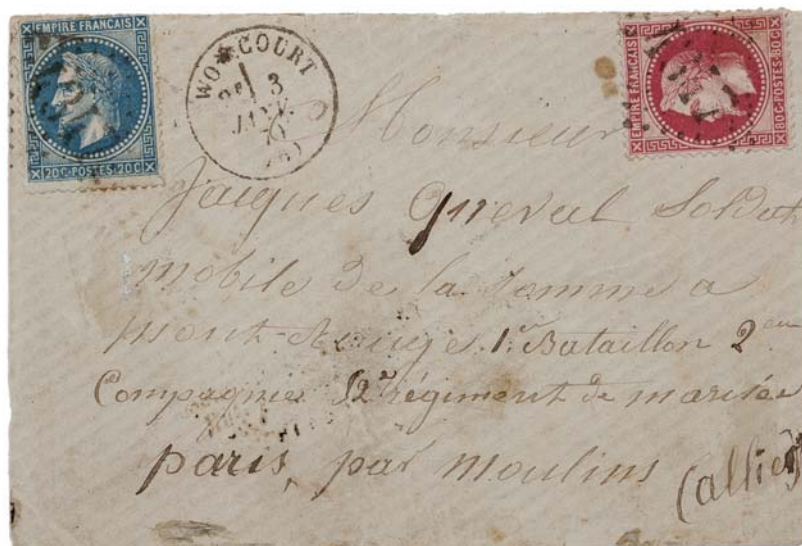 EMPIRE FRANÇAIS
20C·POSTES·20C
WO COURT
3
JANV.
EMPIRE FRANCAIS
80C·POSTES·80C
Monsieur
Jacques Queval Soldat
mobile de la Somme a
mont-Rouge. 1er Bataillon 2em
Compagnie 52e régiment de
paris, par moulins (allier)